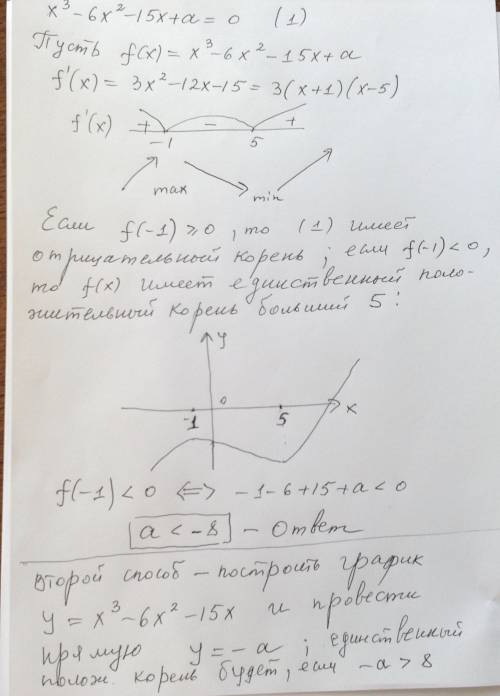 x³-6x²-15x+a=0 (1)
Пусть f(x)=x³-6x²-15x+a
f'(x)=3x²-12x-15=3(x+1)(x-5)
f'(x) + - +
-1 5
max min
Если f(-1)⩾0, то (1) имеет
отрицательный корень; если f(-1)<0,
то f(x) имеет единственный поло-
жительный корень больший 5:
y
0 x
-1 5
f(-1)<0 <=> -1-6+15+a<0
a<-8 - Ответ
Второй способ - построить график
y=x³-6x²-15x и провести
прямую y=-a; единственный
полож. корень будет, если -a>8